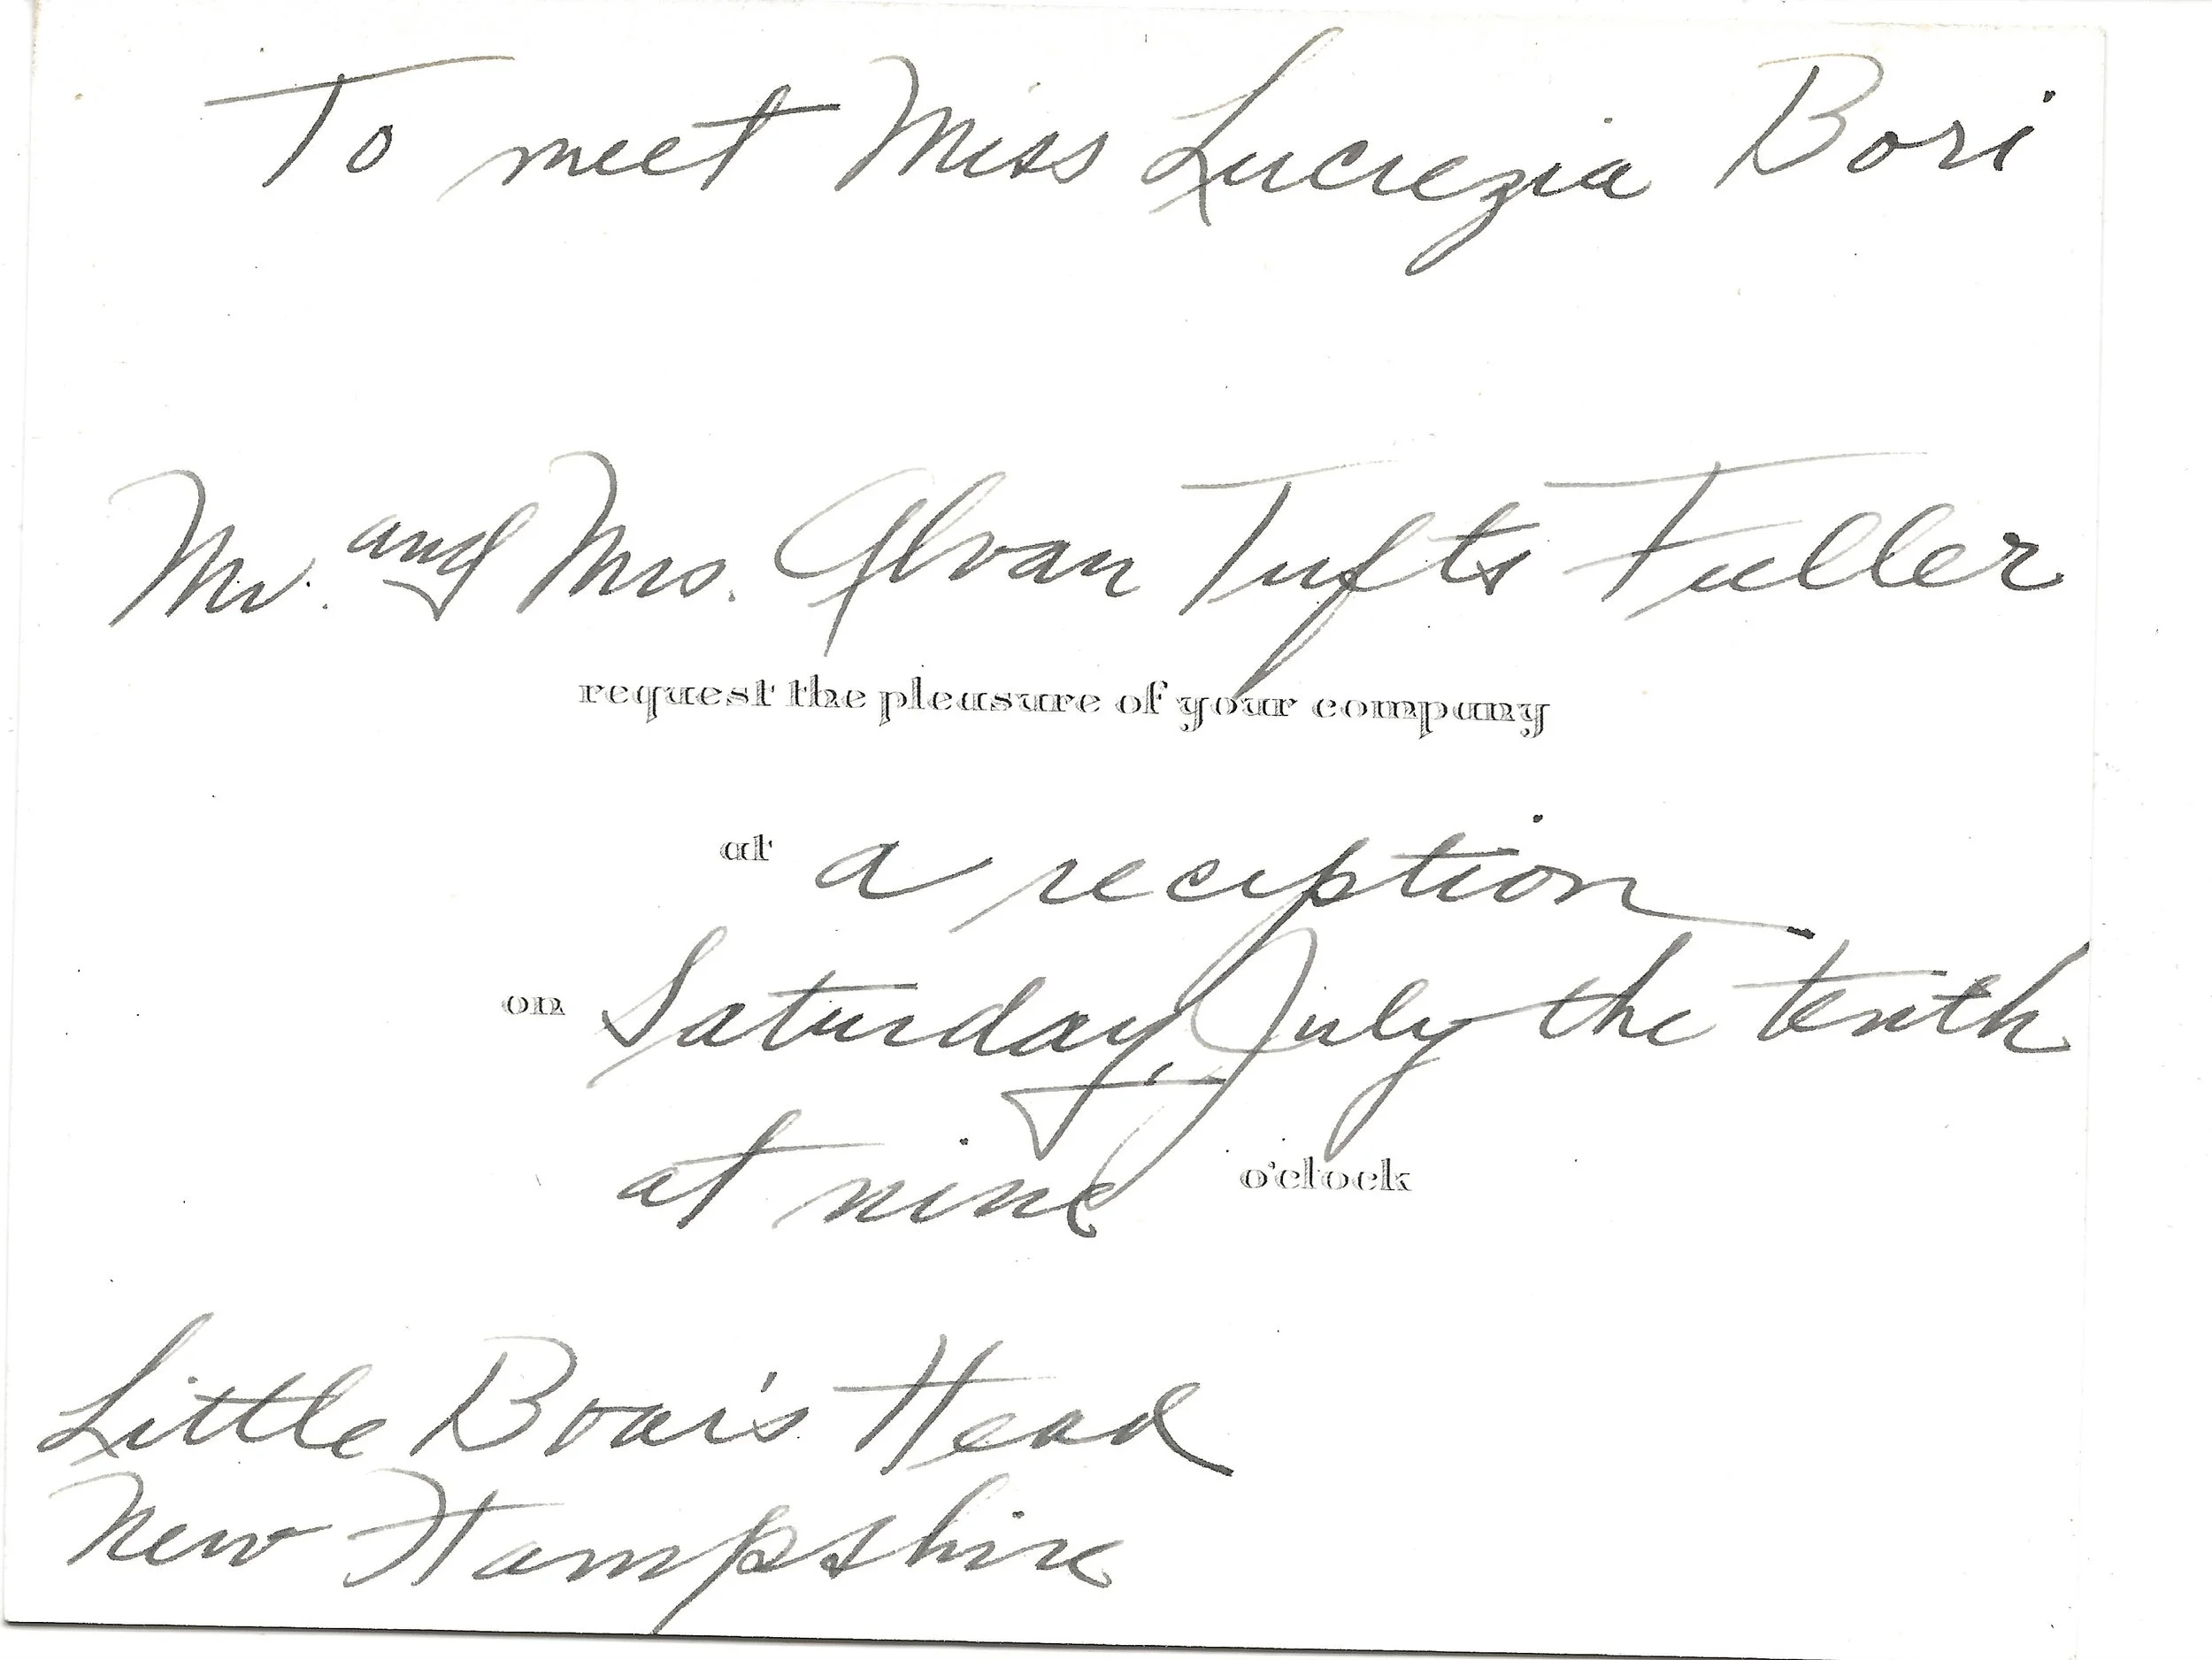 To meet Miss Lucrezia Bori
Mr. and Mrs. Alvan Tufts Fuller
request the pleasure of your company
at a reception
on Saturday, July the tenth
at nine o'clock
Little Boar's Head
New Hampshire